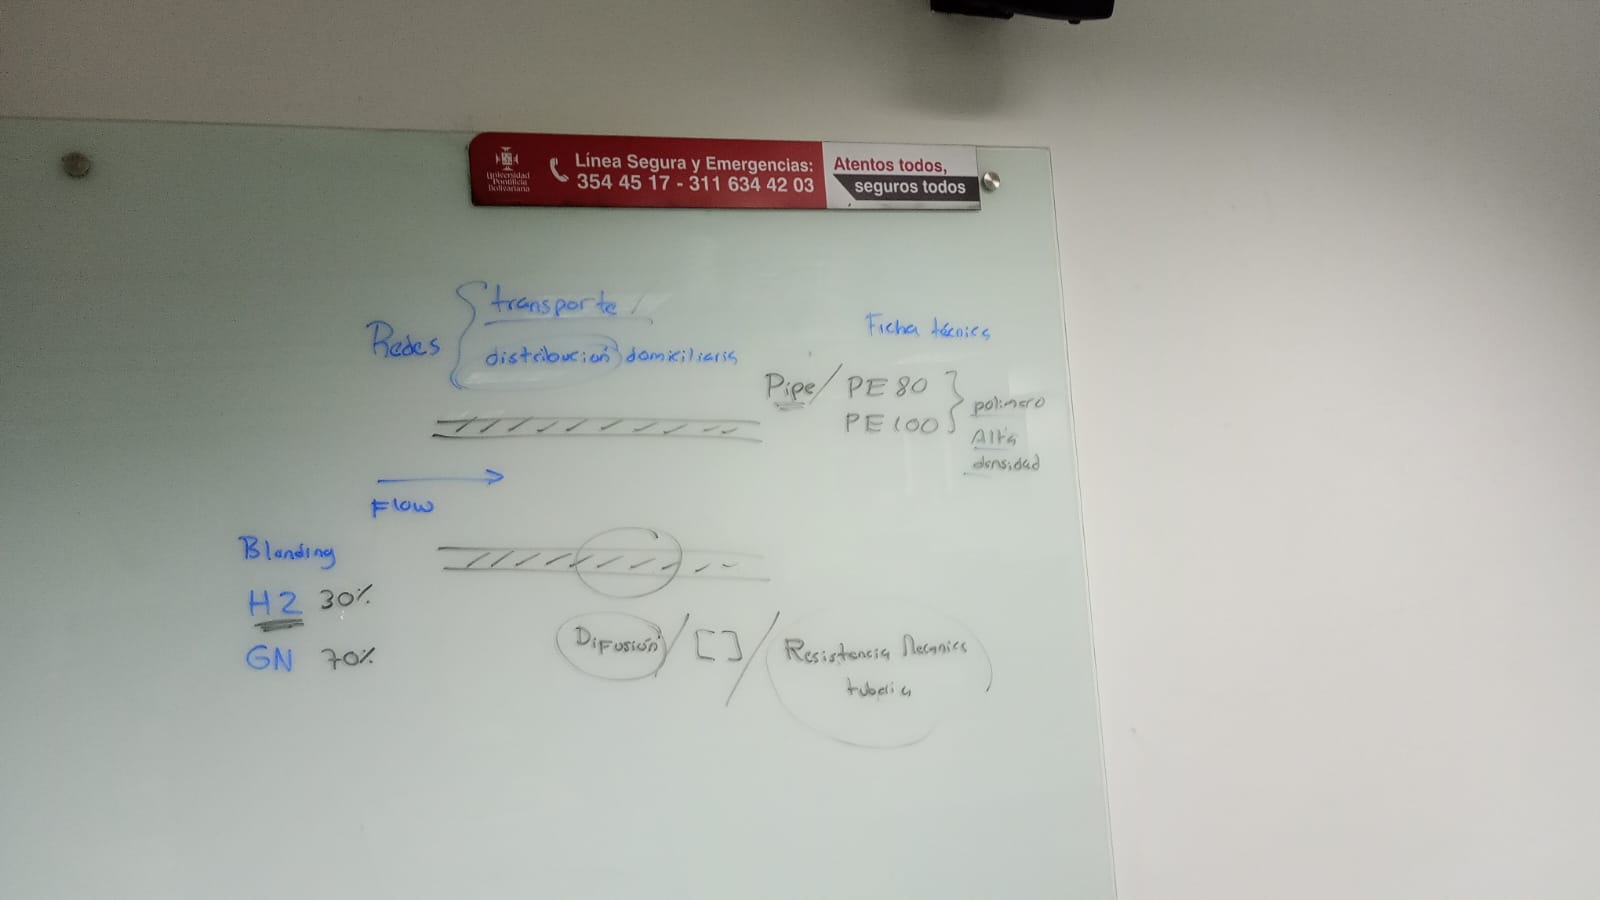 Universidad
Pontificia
Bolivariana
Línea Segura y Emergencias:
354 45 17 - 311 634 42 03
Atentos todos,
seguros todos
Redes
transporte /
distribución domiciliaria
Ficha técnica
Pipe / PE 80
PE 100
polimero
Alta
densidad
Flow
Blending
H2 30%
GN 70%
Difusión / [ ] / Resistencia Mecanica
tuberia